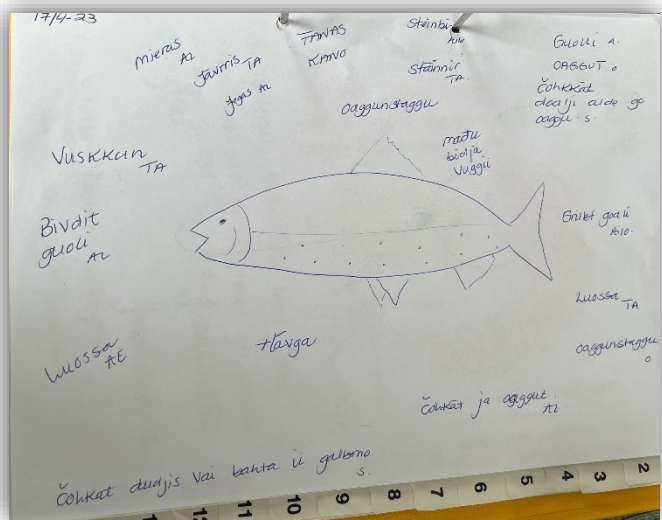 17/4-23
mieras
AL
Jávrris TA
Jegas AL
TANAS
KANO
Steinbi
Stáinnir
TA.
Guolli A.
OAGGUT O
Čohkkát
duolji alde go
oaggu. S.
Oaggunstaggu
matu
bidja
vuggii
Vuskkun
TA
Bivdit
guoli
AL
Grillet guoli
Luossa
TA
Oaggunstaggu
O
Luossa
AE
Hávga
Čohkát ja oaggut.
AL
Čohkat dudjis vai bahta ii galbmo
S.
12
10
9
8
7
6
5
4
3
2